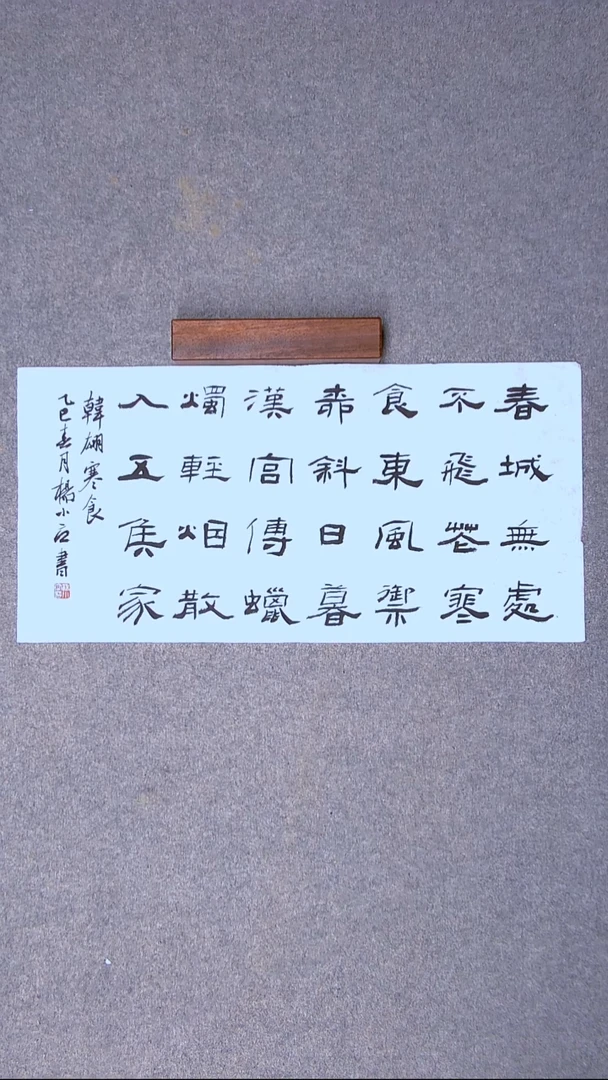 春城無處
不飛花寒
食東風禦
柳斜日暮
漢宮傳蠟
燭輕烟散
入五侯家
韓翃寒食
乙巳春月小書